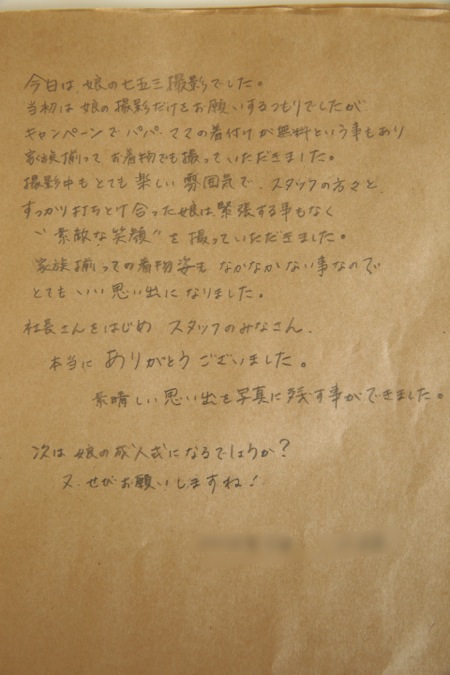 今日は、娘の七五三撮影でした。
当初は、娘の撮影だけをお願いするつもりでしたが
キャンペーンで、パパ、ママの着付けが無料という事もあり
家族揃って、お着物でも撮っていただきました。
撮影中もとても楽しい雰囲気で、スタッフの方々と、
すっかり打ちとけ合った娘は、緊張する事もなく
"素敵な笑顔"を撮っていただきました。
家族揃っての着物姿も なかなかない事なので
とてもいい思い出になりました。
社長さんをはじめ スタッフのみなさん、
本当に ありがとうございました。
素晴しい思い出を写真に残す事ができました。
次は、娘の成人式になるでしょうか?
又、ぜひお願いしますね!